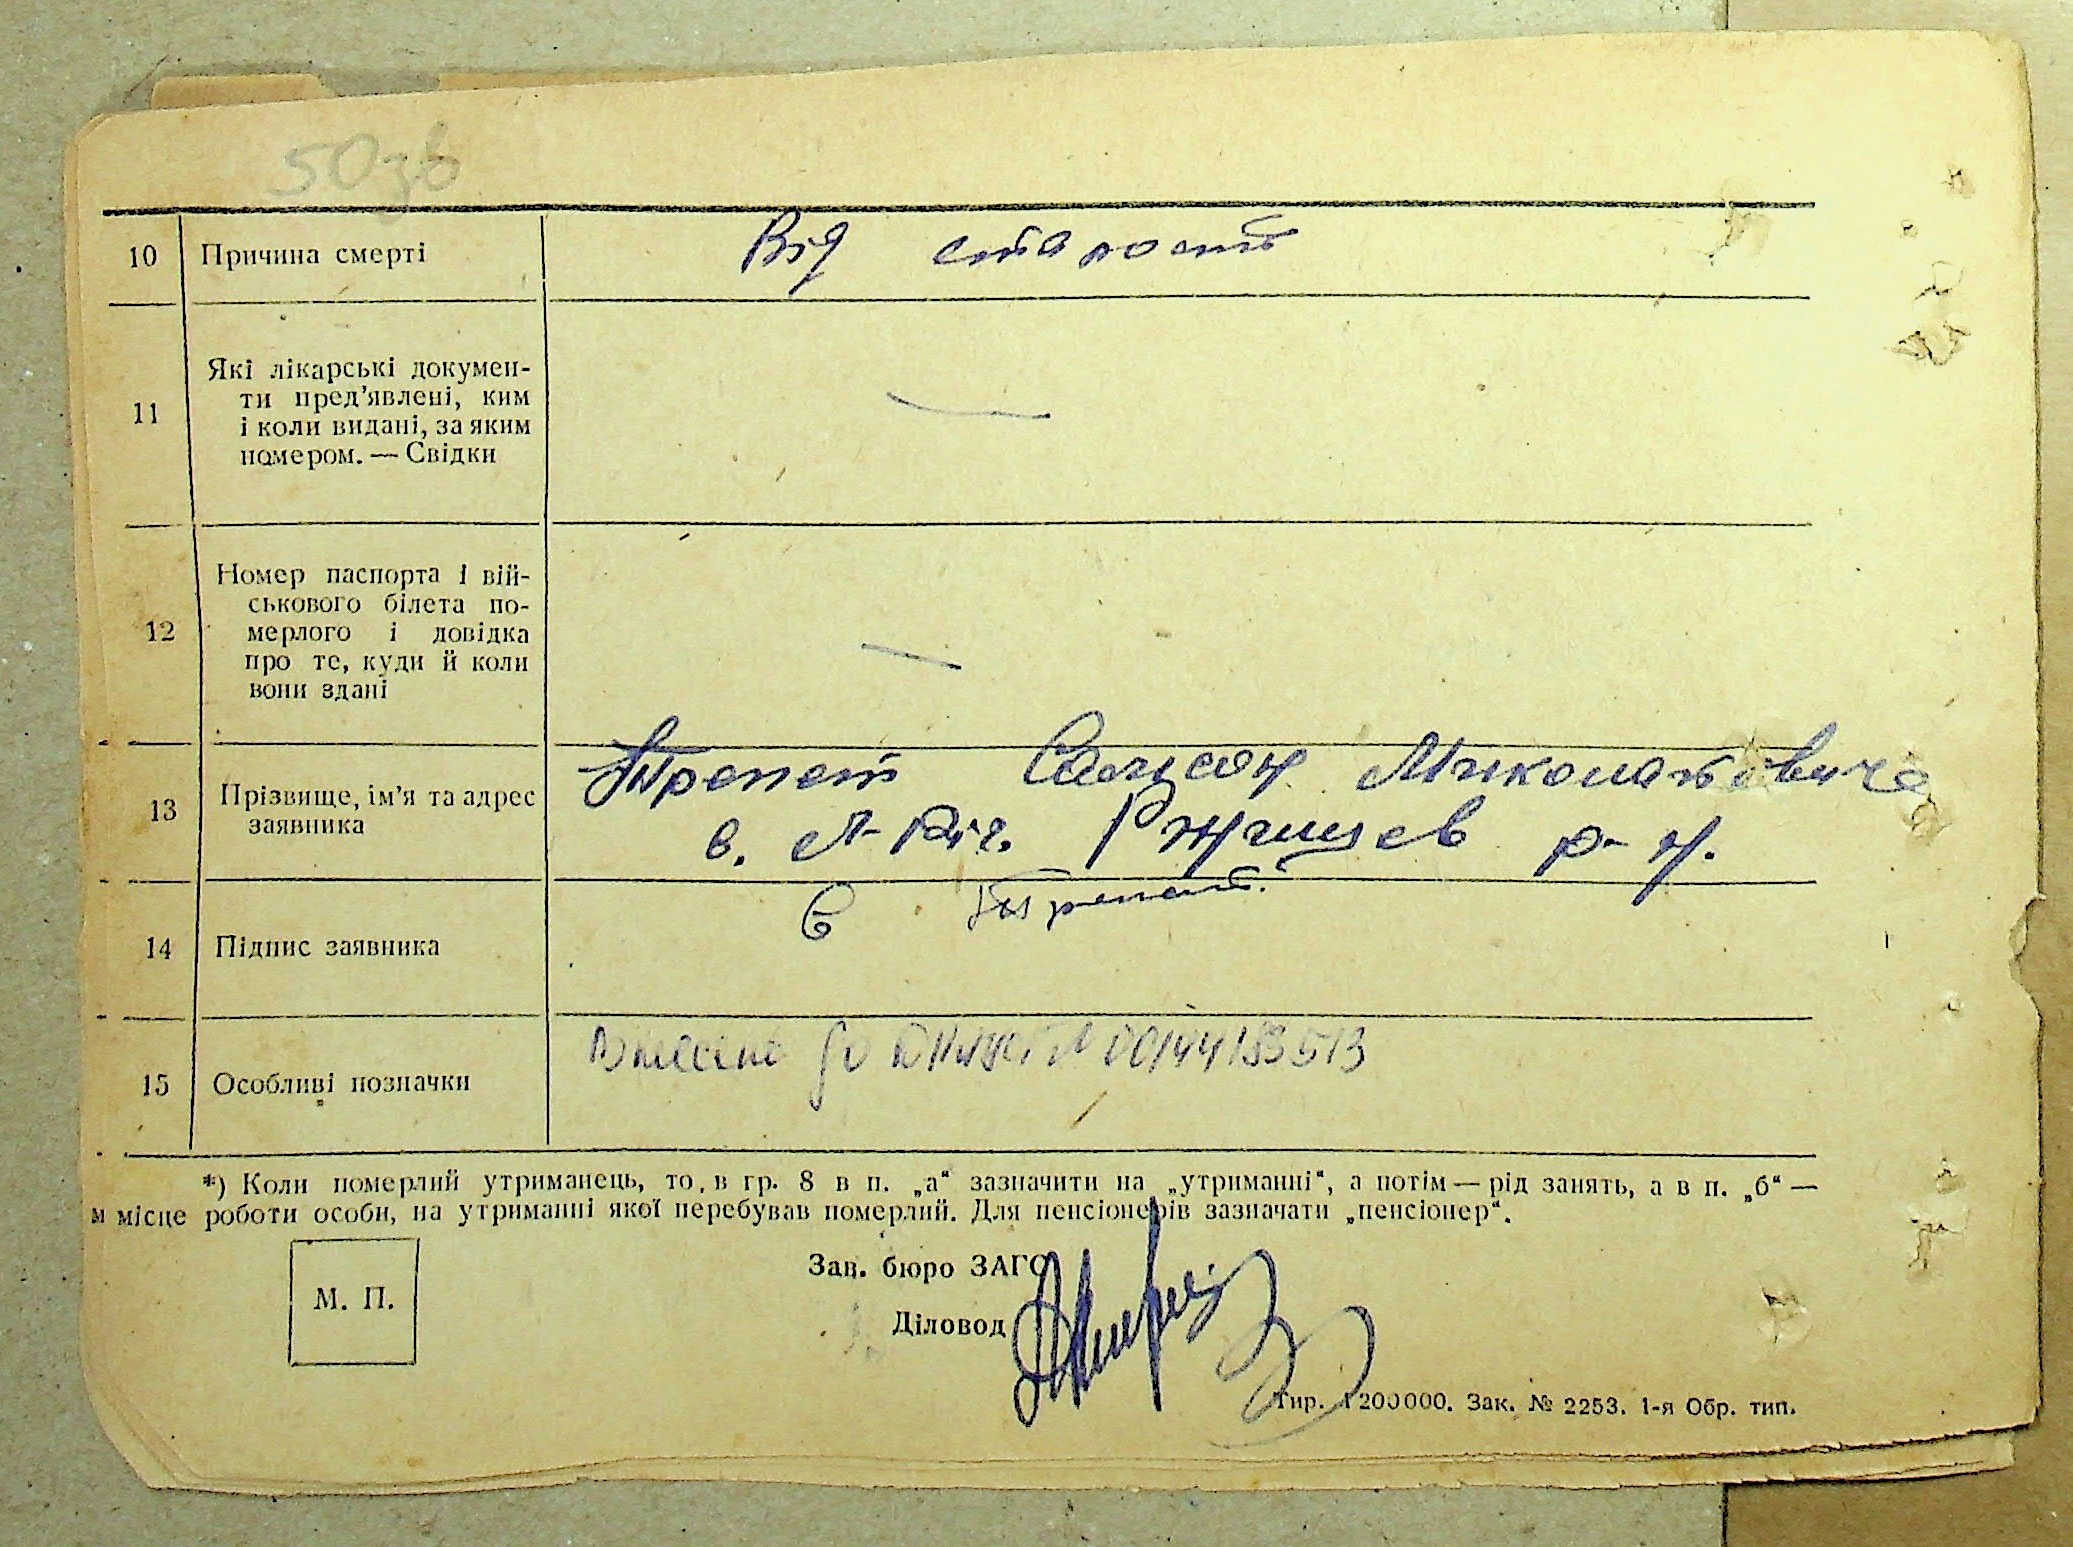 50зв
10 Причина смерті Від старости
11 Які лікарські докумен-
ти пред’явлені, ким
і коли видані, за яким
номером. — Свідки —
12 Номер паспорта і вій-
ськового білета по-
мерлого і довідка
про те, куди й коли
вони здані —
13 Прізвище, ім’я та адрес
заявника Трепет Самсон Миколайович
с. р-н.
14 Підпис заявника Трепет.
15 Особливі позначки Внесено до книжки № 00144133513
*) Коли померлий утриманець, то, в гр. 8 в п. „а“ зазначити на „утриманні“, а потім — рід занять, а в п. „б“ —
м місце роботи особи, на утриманні якої перебував померлий. Для пенсіонерів зазначати „пенсіонер“.
Зав. бюро ЗАГС
М. П.
Діловод
Тир. 1200000. Зак. № 2253. 1-я Обр. тип.